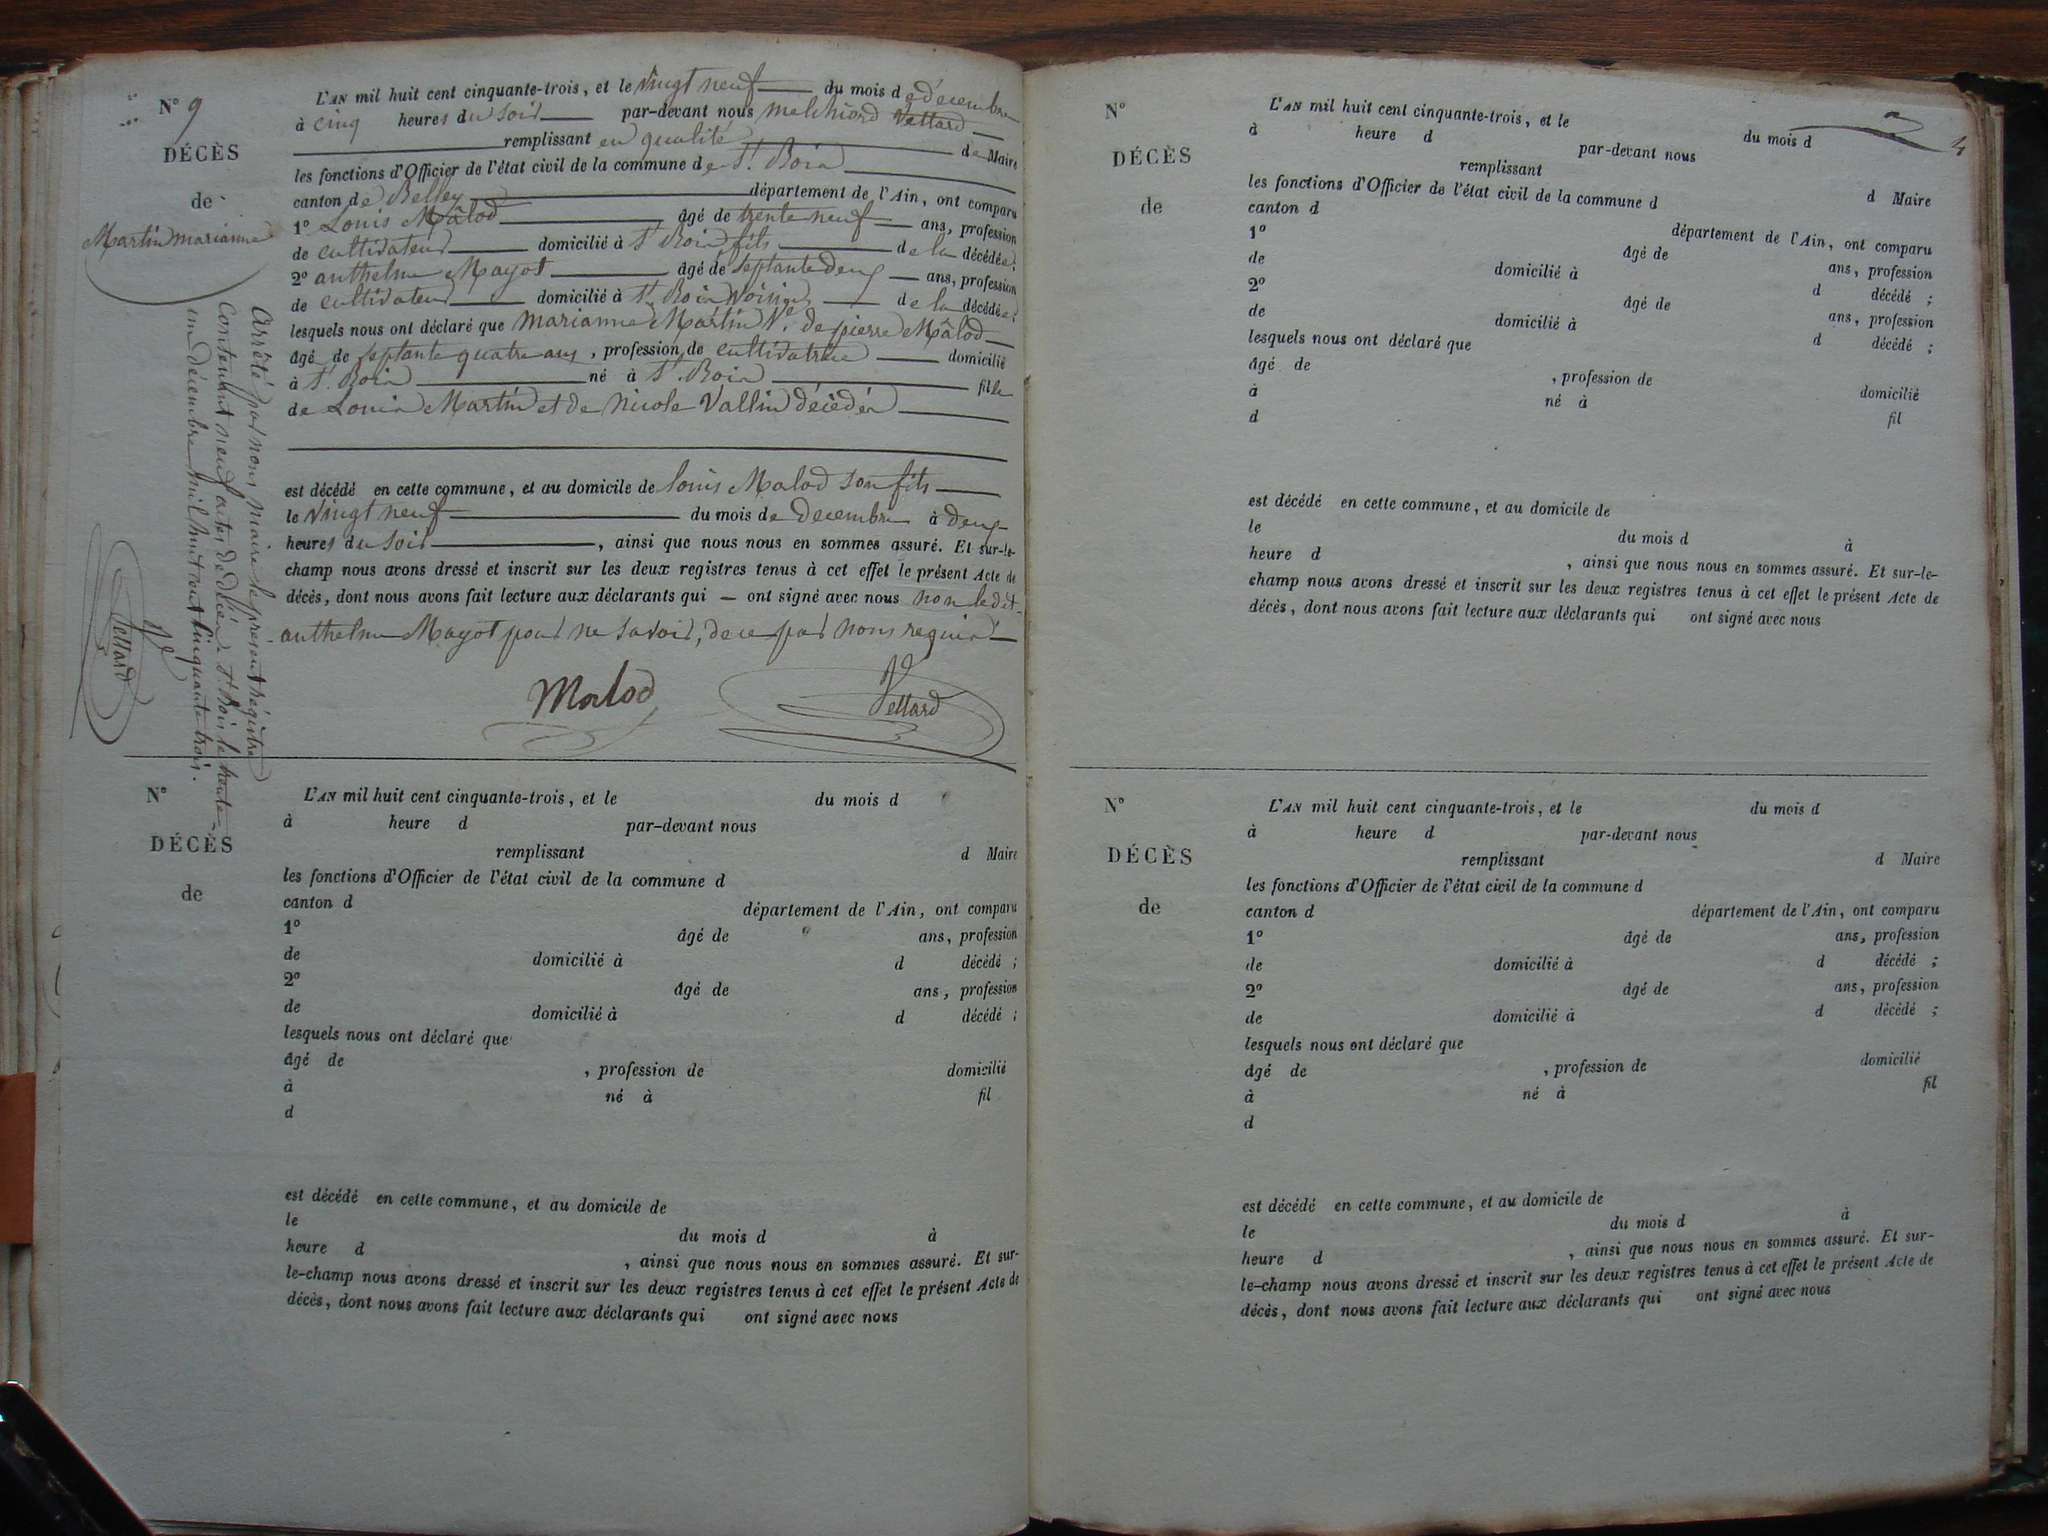 N° 9
DÉCÈS
de
Martin marianne
L'AN mil huit cent cinquante-trois, et le vingt neuf du mois de decembre
à cinq heures du soir par-devant nous melchiord Vettard
remplissant en qualité de Maire
les fonctions d'Officier de l'état civil de la commune de St. Bois
canton de Belley département de l'Ain, ont comparu
1° Louis Mâlod âgé de trente neuf ans, profession
de cultivateur domicilié à St Bois fils de la décédée;
2° anthelme Mayot âgé de septante deux ans, profession
de cultivateur domicilié à St Bois Voisin de la décédée;
lesquels nous ont déclaré que marianne Martin Ve. de pierre Mâlod
âgé de septante quatre ans, profession de cultivatrice domicilié
à St. Bois né à St. Bois fille
de Louis Martin et de Nicole Vallin décédés
est décédé en cette commune, et au domicile de louis Malod son fils
le vingt neuf du mois de decembre à deux
heures du soir, ainsi que nous nous en sommes assuré. Et sur-le-
champ nous avons dressé et inscrit sur les deux registres tenus à cet effet le présent Acte de
décès, dont nous avons fait lecture aux déclarants qui — ont signé avec nous non ledit
anthelme Mayot pour ne savoir, de ce par nous requis
Malod Vettard
Arrêté par nous Maire le présent régistre
Contenant neuf actes de décès à St Bois le trente
un décembre mil huit cent cinquante trois.
Vettard
N°
DÉCÈS
de
L'AN mil huit cent cinquante-trois, et le du mois d
à heure d par-devant nous
remplissant d Maire
les fonctions d'Officier de l'état civil de la commune d
canton d département de l'Ain, ont comparu
1° âgé de ans, profession
de domicilié à d décédé ;
2° âgé de ans, profession
de domicilié à d décédé ;
lesquels nous ont déclaré que
âgé de , profession de domicilié
à né à fil
d
est décédé en cette commune, et au domicile de
le du mois d à
heure d , ainsi que nous nous en sommes assuré. Et sur-
le-champ nous avons dressé et inscrit sur les deux registres tenus à cet effet le présent Acte de
décès, dont nous avons fait lecture aux déclarants qui ont signé avec nous
4
N°
DÉCÈS
de
L'AN mil huit cent cinquante-trois, et le du mois d
à heure d par-devant nous
remplissant d Maire
les fonctions d'Officier de l'état civil de la commune d
canton d département de l'Ain, ont comparu
1° âgé de ans, profession
de domicilié à d décédé ;
2° âgé de ans, profession
de domicilié à d décédé ;
lesquels nous ont déclaré que
âgé de , profession de domicilié
à né à fil
d
est décédé en cette commune, et au domicile de
le du mois d à
heure d , ainsi que nous nous en sommes assuré. Et sur-le-
champ nous avons dressé et inscrit sur les deux registres tenus à cet effet le présent Acte de
décès, dont nous avons fait lecture aux déclarants qui ont signé avec nous
N°
DÉCÈS
de
L'AN mil huit cent cinquante-trois, et le du mois d
à heure d par-devant nous
remplissant d Maire
les fonctions d'Officier de l'état civil de la commune d
canton d département de l'Ain, ont comparu
1° âgé de ans, profession
de domicilié à d décédé ;
2° âgé de ans, profession
de domicilié à d décédé ;
lesquels nous ont déclaré que
âgé de , profession de domicilié
à né à fil
d
est décédé en cette commune, et au domicile de
le du mois d à
heure d , ainsi que nous nous en sommes assuré. Et sur-
le-champ nous avons dressé et inscrit sur les deux registres tenus à cet effet le présent Acte de
décès, dont nous avons fait lecture aux déclarants qui ont signé avec nous